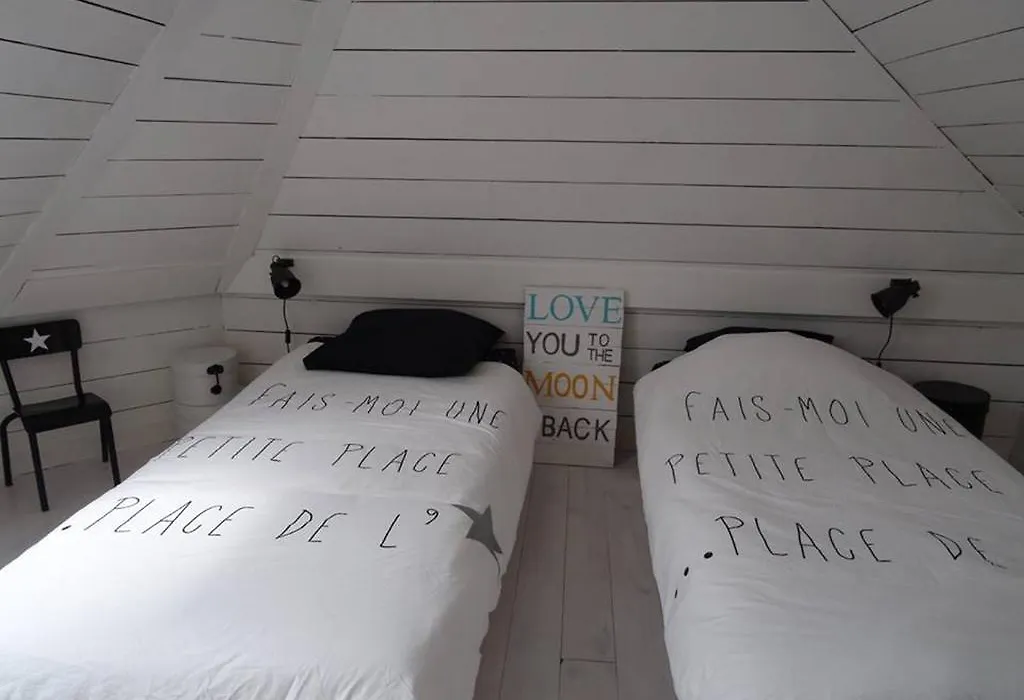 FAIS-MOI UNE
PETITE PLACE
.PLACE DE L'
LOVE
YOU TO THE
MOON
BACK
FAIS-MOI UNE
PETITE PLACE
.PLACE DE